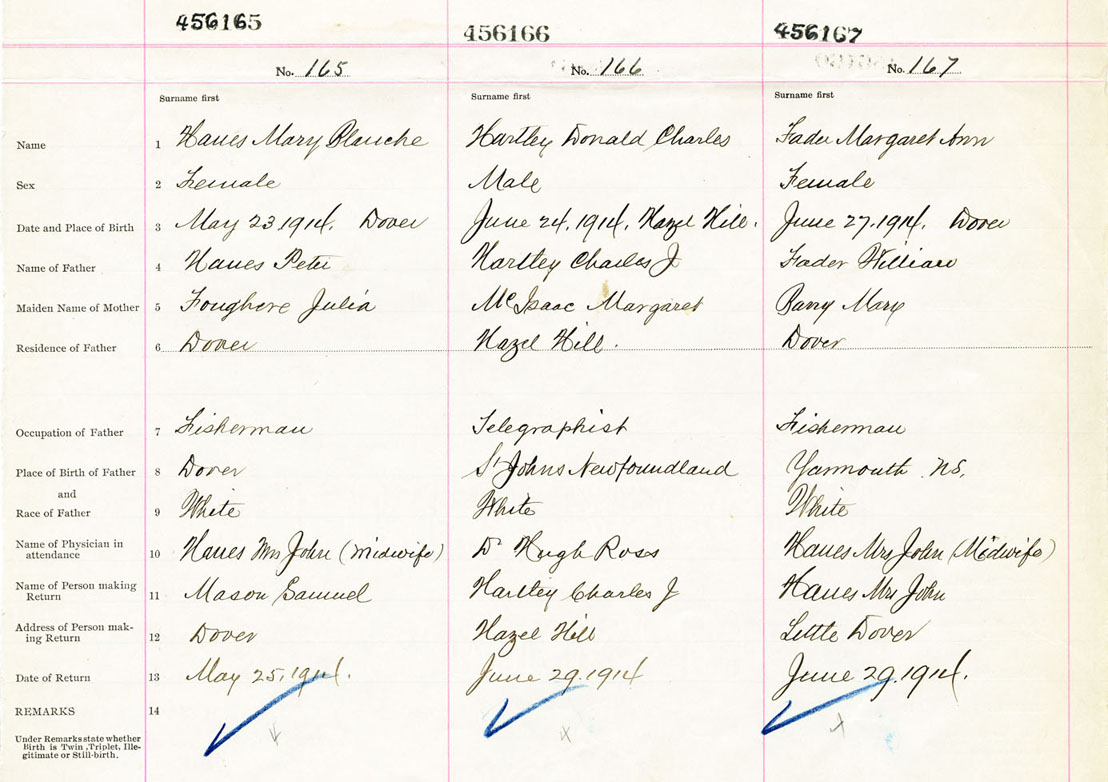 456165 456166 456167
No. 165 No. 166 No. 167
Surname first Surname first Surname first
Name 1 Hanes Mary Blanche Hartley Donald Charles Fader Margaret Ann
Sex 2 Female Male Female
Date and Place of Birth 3 May 23 1914. Dover June 24, 1914, Hazel Hill. June 27. 1914. Dover
Name of Father 4 Hanes Peter Hartley Charles J Fader William
Maiden Name of Mother 5 Foughere Julia McIsaac Margaret Barry Mary
Residence of Father 6 Dover Hazel Hill. Dover
Occupation of Father 7 Fisherman Telegraphist Fisherman
Place of Birth of Father 8 Dover St Johns Newfoundland Yarmouth NS.
and
Race of Father 9 White White White
Name of Physician in
attendance 10 Hanes Mrs John (Midwife) Dr Hugh Ross Hanes Mrs John (Midwife)
Name of Person making
Return 11 Mason Samuel Hartley Charles J Hanes Mrs John
Address of Person mak-
ing Return 12 Dover Hazel Hill Little Dover
Date of Return 13 May 25, 1914. June 29. 1914 June 29, 1914.
REMARKS 14
Under Remarks state whether
Birth is Twin, Triplet, Ille-
gitimate or Still-birth.